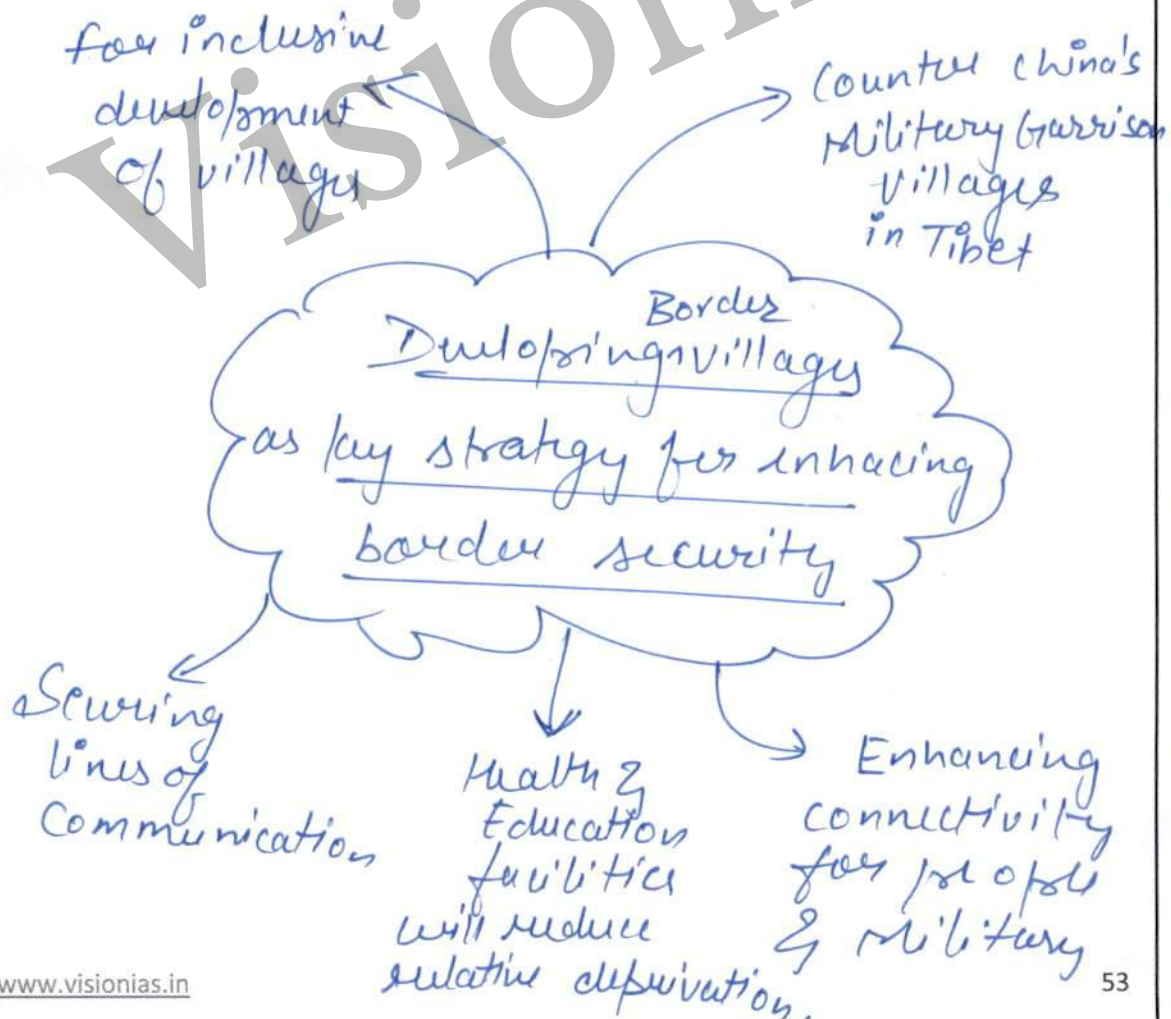 for inclusive
development
of villages
Counter China's
Military Garrison
villages
in Tibet
Border
Developing villages
as key strategy for enhacing
border security
Securing
lines of
Communication
Health &
Education
facilities
will reduce
relative deprivation.
Enhancing
connectivity
for people
& Military
www.visionias.in
53
Vision